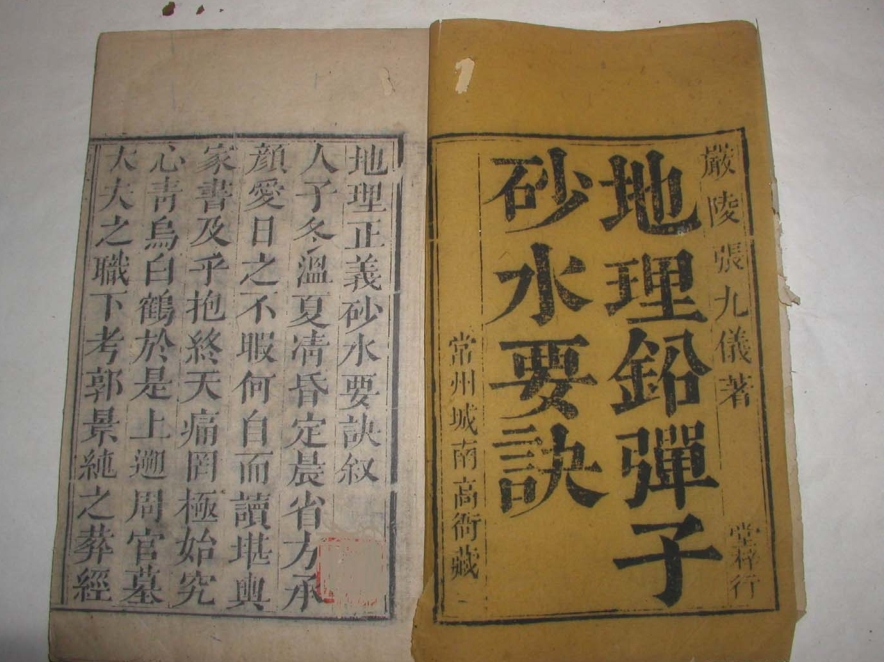 嚴陵張九儀著
堂梓行
地理鉛彈子
砂水要訣
常州城南高衙藏
地理正義砂水要訣叙
人子冬溫夏凊昏定晨省方承
顏愛日之不暇何自而讀堪輿
家書及乎抱終天痛罔極始究
心靑烏白鶴於是上遡周官墓
大夫之職下考郭景純之葬經